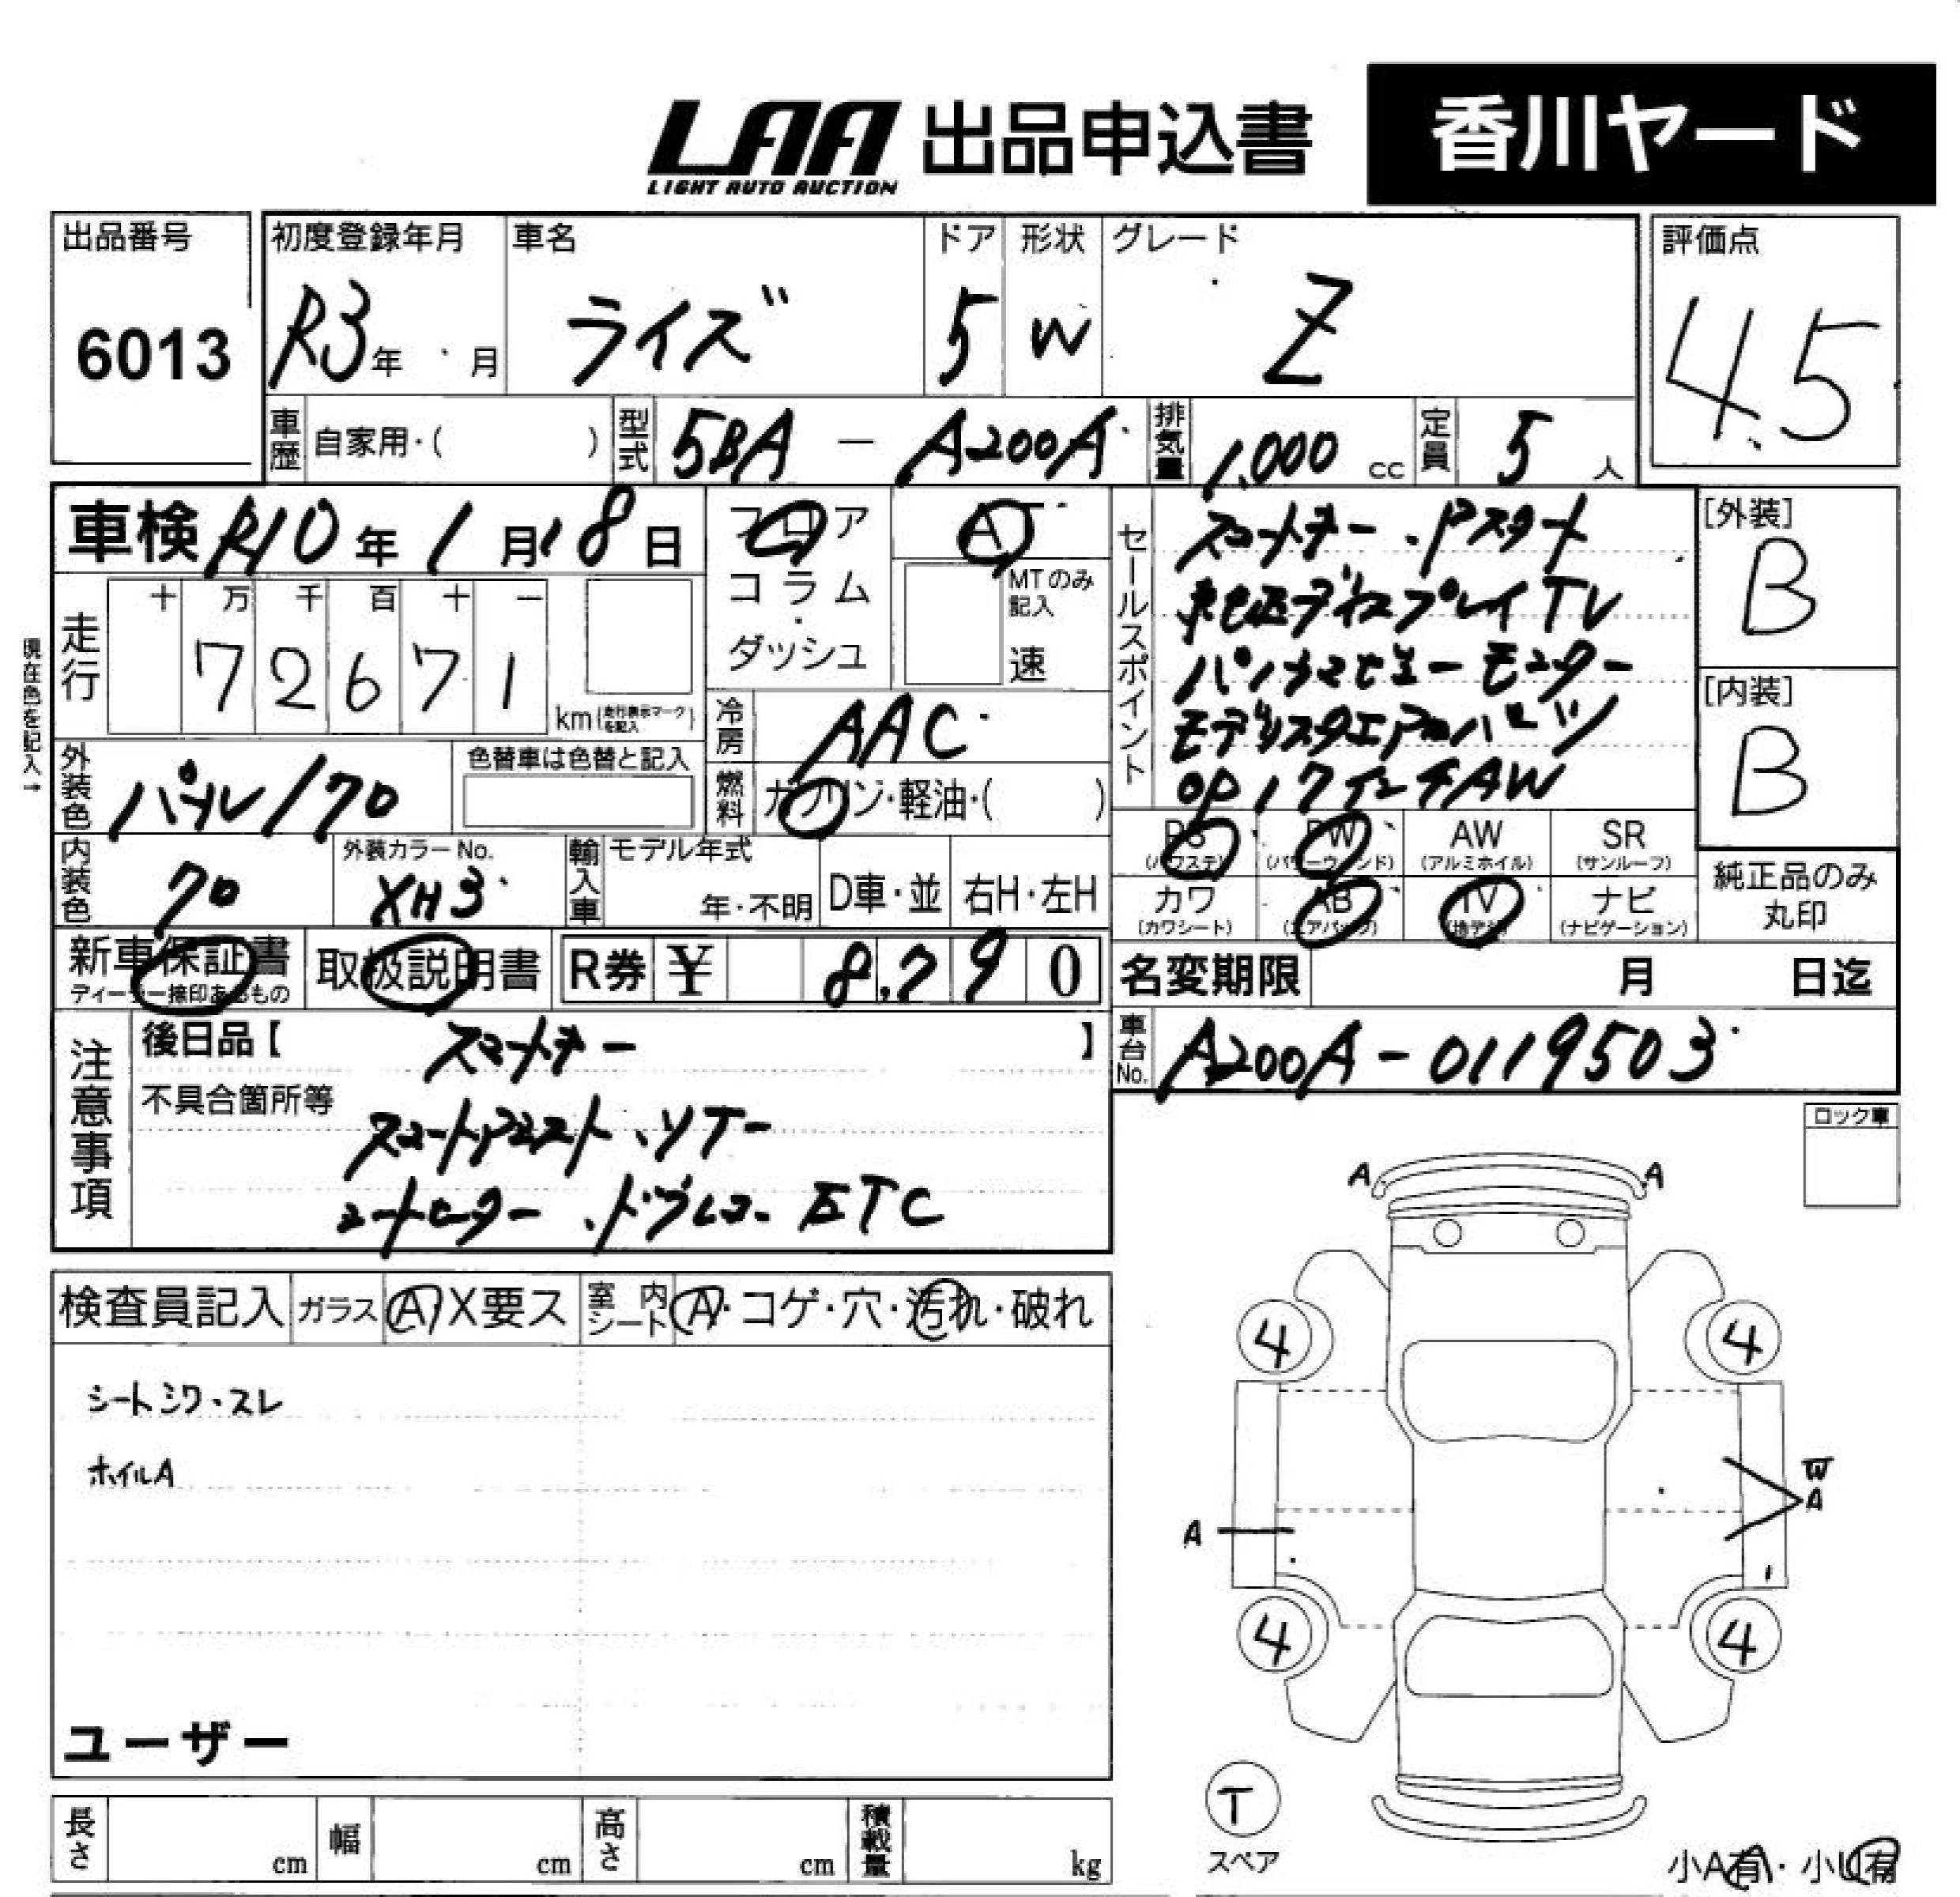 LAA 出品申込書 香川ヤード
LIGHT AUTO AUCTION
出品番号 初度登録年月 車名 ドア 形状 グレード 評価点
6013 R3年 月 ライズ 5 W Z 4.5
車歴 自家用・( ) 型式 5BA - A200A 排気量 1,000 cc 定員 5 人
車検 R10年 1月18日 フロア AT
コラム・ダッシュ MTのみ記入 速
セールスポイント スマートキー・Pスタート
純正ディスプレイTV
パノラマビューモニター
モデリスタエアロパーツ
OP17インチAW
[外装] B
[内装] B
現在色を記入→
走行 十 万 千 百 十 一
7 2 6 7 1 km (走行表示マークを記入)
冷房 AAC
外装色 パール/70 色替車は色替と記入 燃料 ガソリン・軽油・( )
PS (パワステ) PW (パワーウィンド) AW (アルミホイル) SR (サンルーフ)
内装色 70 外装カラーNo. XH3 輸入車 モデル年式 年・不明 D車・並 右H・左H
カワ (カワシート) AB (エアバッグ) TV (地デジ) ナビ (ナビゲーション)
純正品のみ丸印
新車保証書 ディーラー捺印あるもの 取扱説明書 R券 ¥ 8,290 名変期限 月 日迄
注意事項 後日品【 スマートキー 】 車台No. A200A-0119503
不具合箇所等
スマートアシスト・ソナー
シートヒーター・ドラレコ・ETC
ロック車
A A
検査員記入 ガラス A X要ス 室内シート A・コゲ・穴・汚れ・破れ
4 4
シートシワ・スレ
ホイルA
W
A
A
4 4
ユーザー
T
スペア
長さ cm 幅 cm 高さ cm 積載量 kg
小A有・小U有